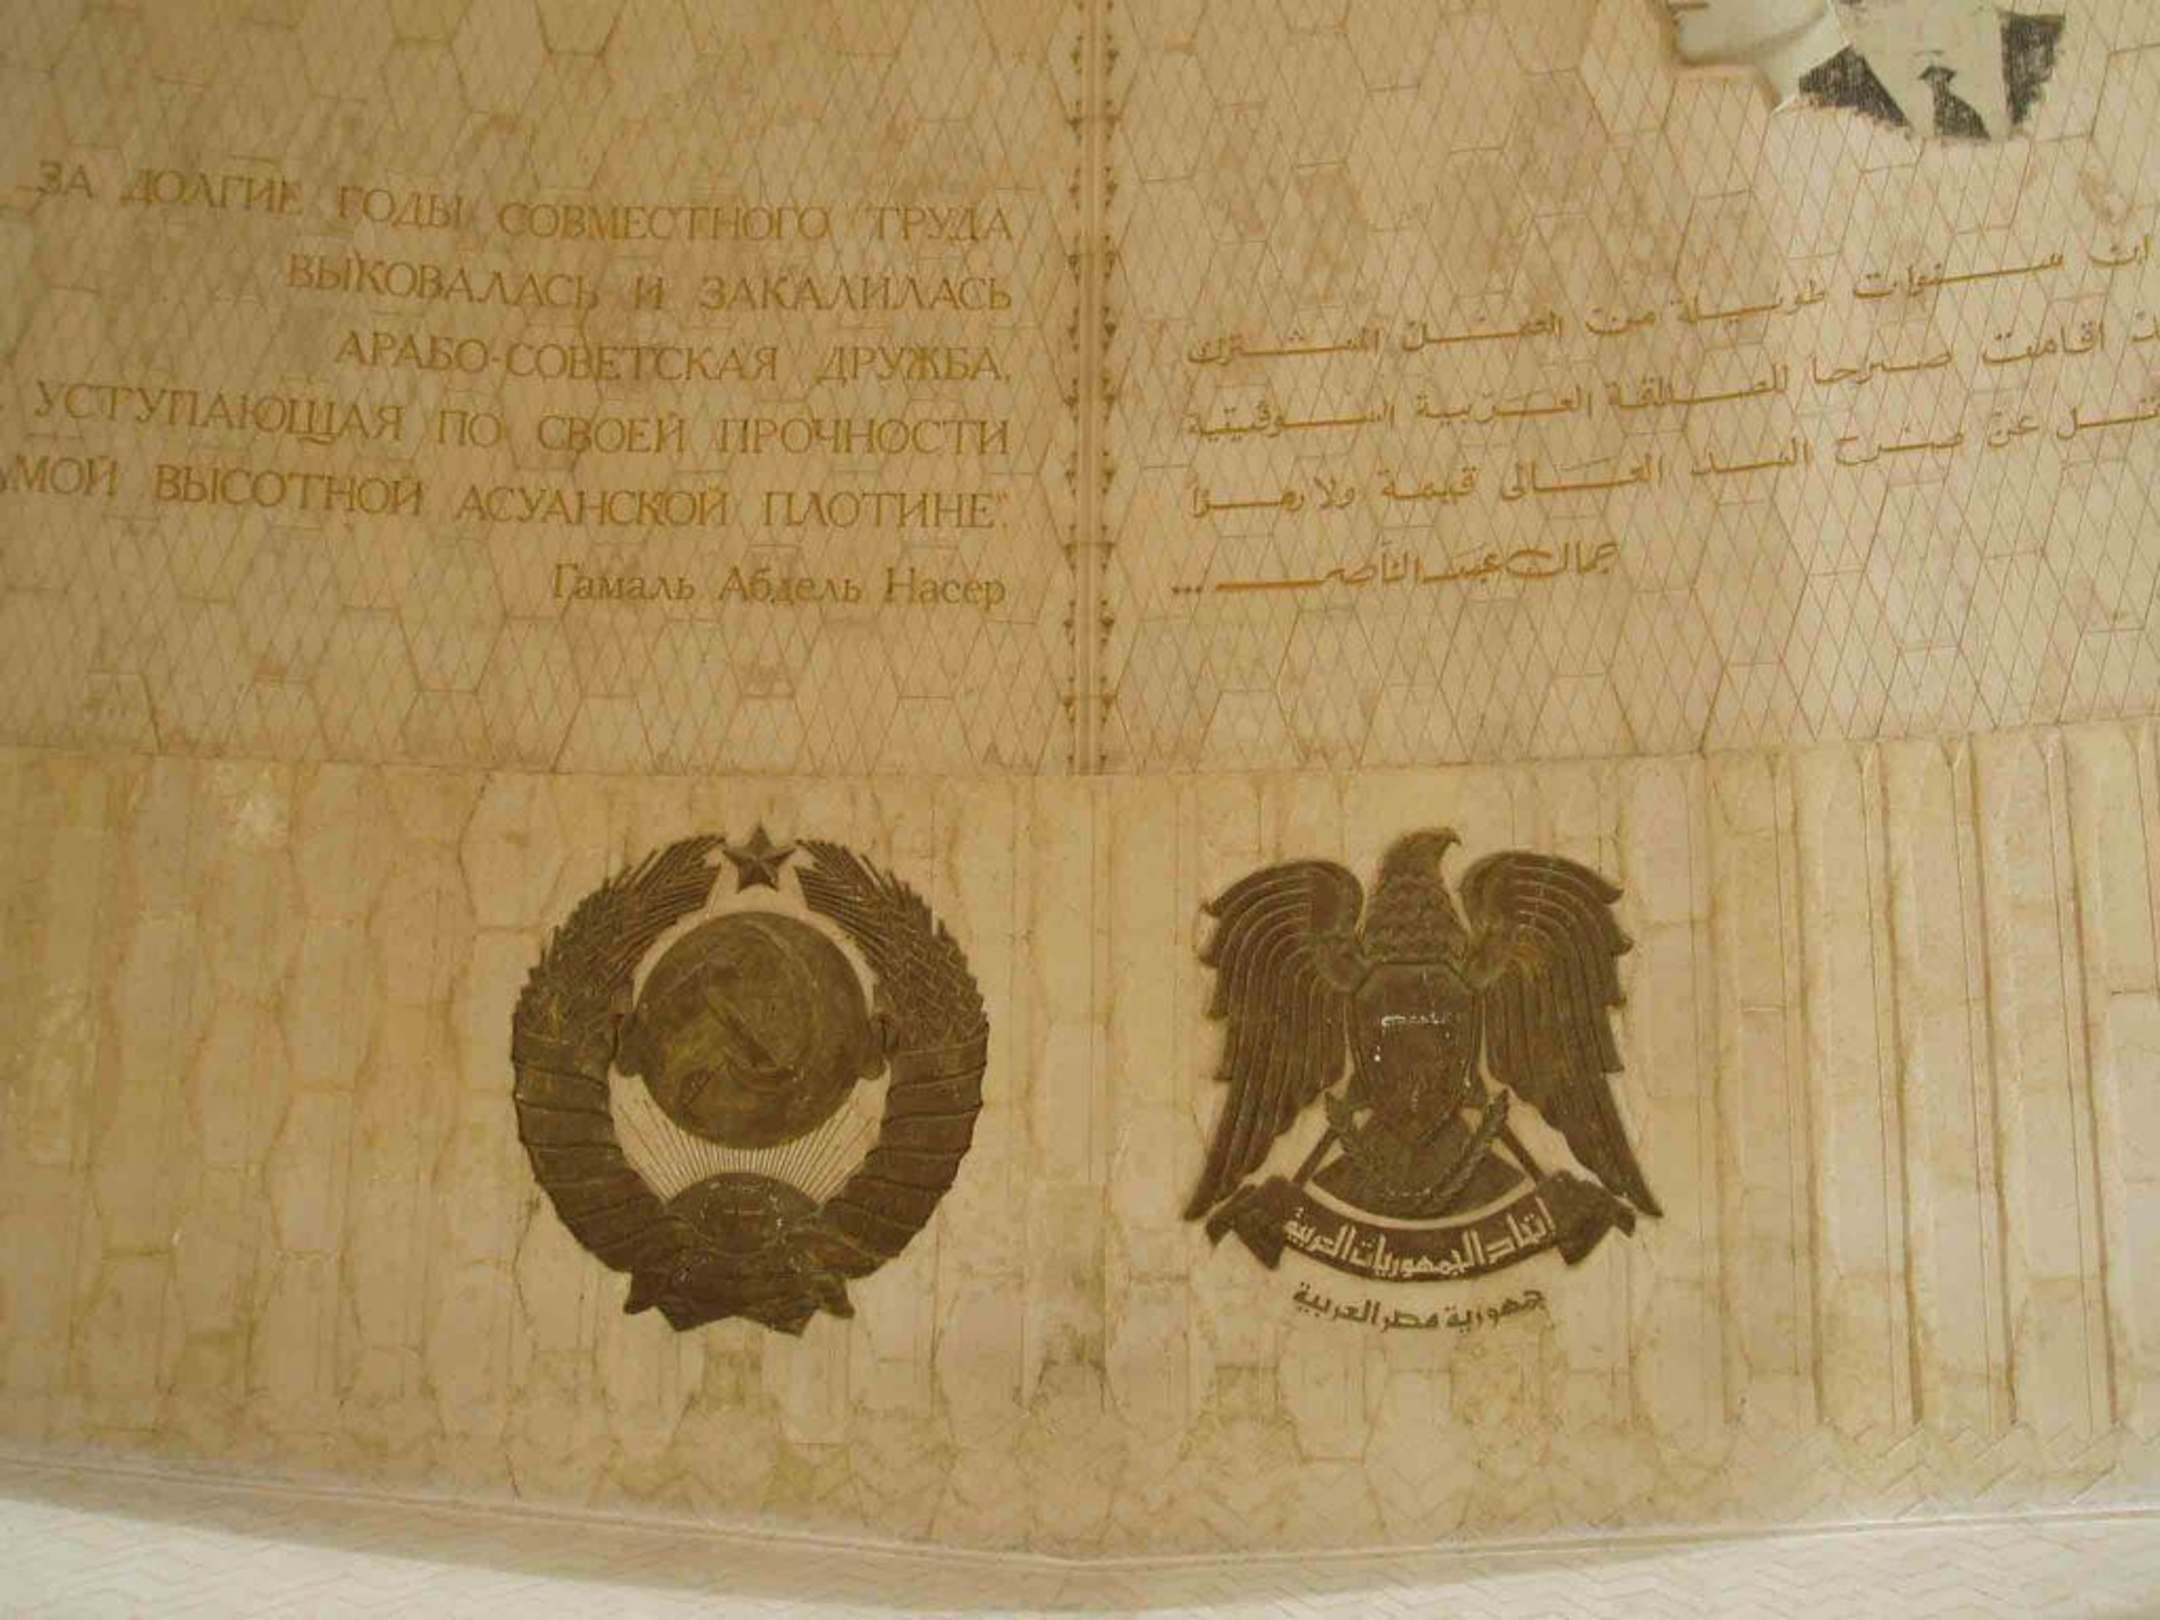 ЗА ДОЛГИЕ ГОДЫ СОВМЕСТНОГО ТРУДА
ВЫКОВАЛАСЬ И ЗАКАЛИЛАСЬ
АРАБО-СОВЕТСКАЯ ДРУЖБА,
УСТУПАЮЩАЯ ПО СВОЕЙ ПРОЧНОСТИ
МОЙ ВЫСОТНОЙ АСУАНСКОЙ ПЛОТИНЕ".
Гамаль Абдель Насер
ان سنوات طويلة من العمل المشترك
اقامت صرحا للصداقة العربية السوفيتية
عن صرح السد العالى قيمة ولا رمزا
جمال عبد الناصر ...
اتحاد الجمهوريات العربية
جمهورية مصر العربية